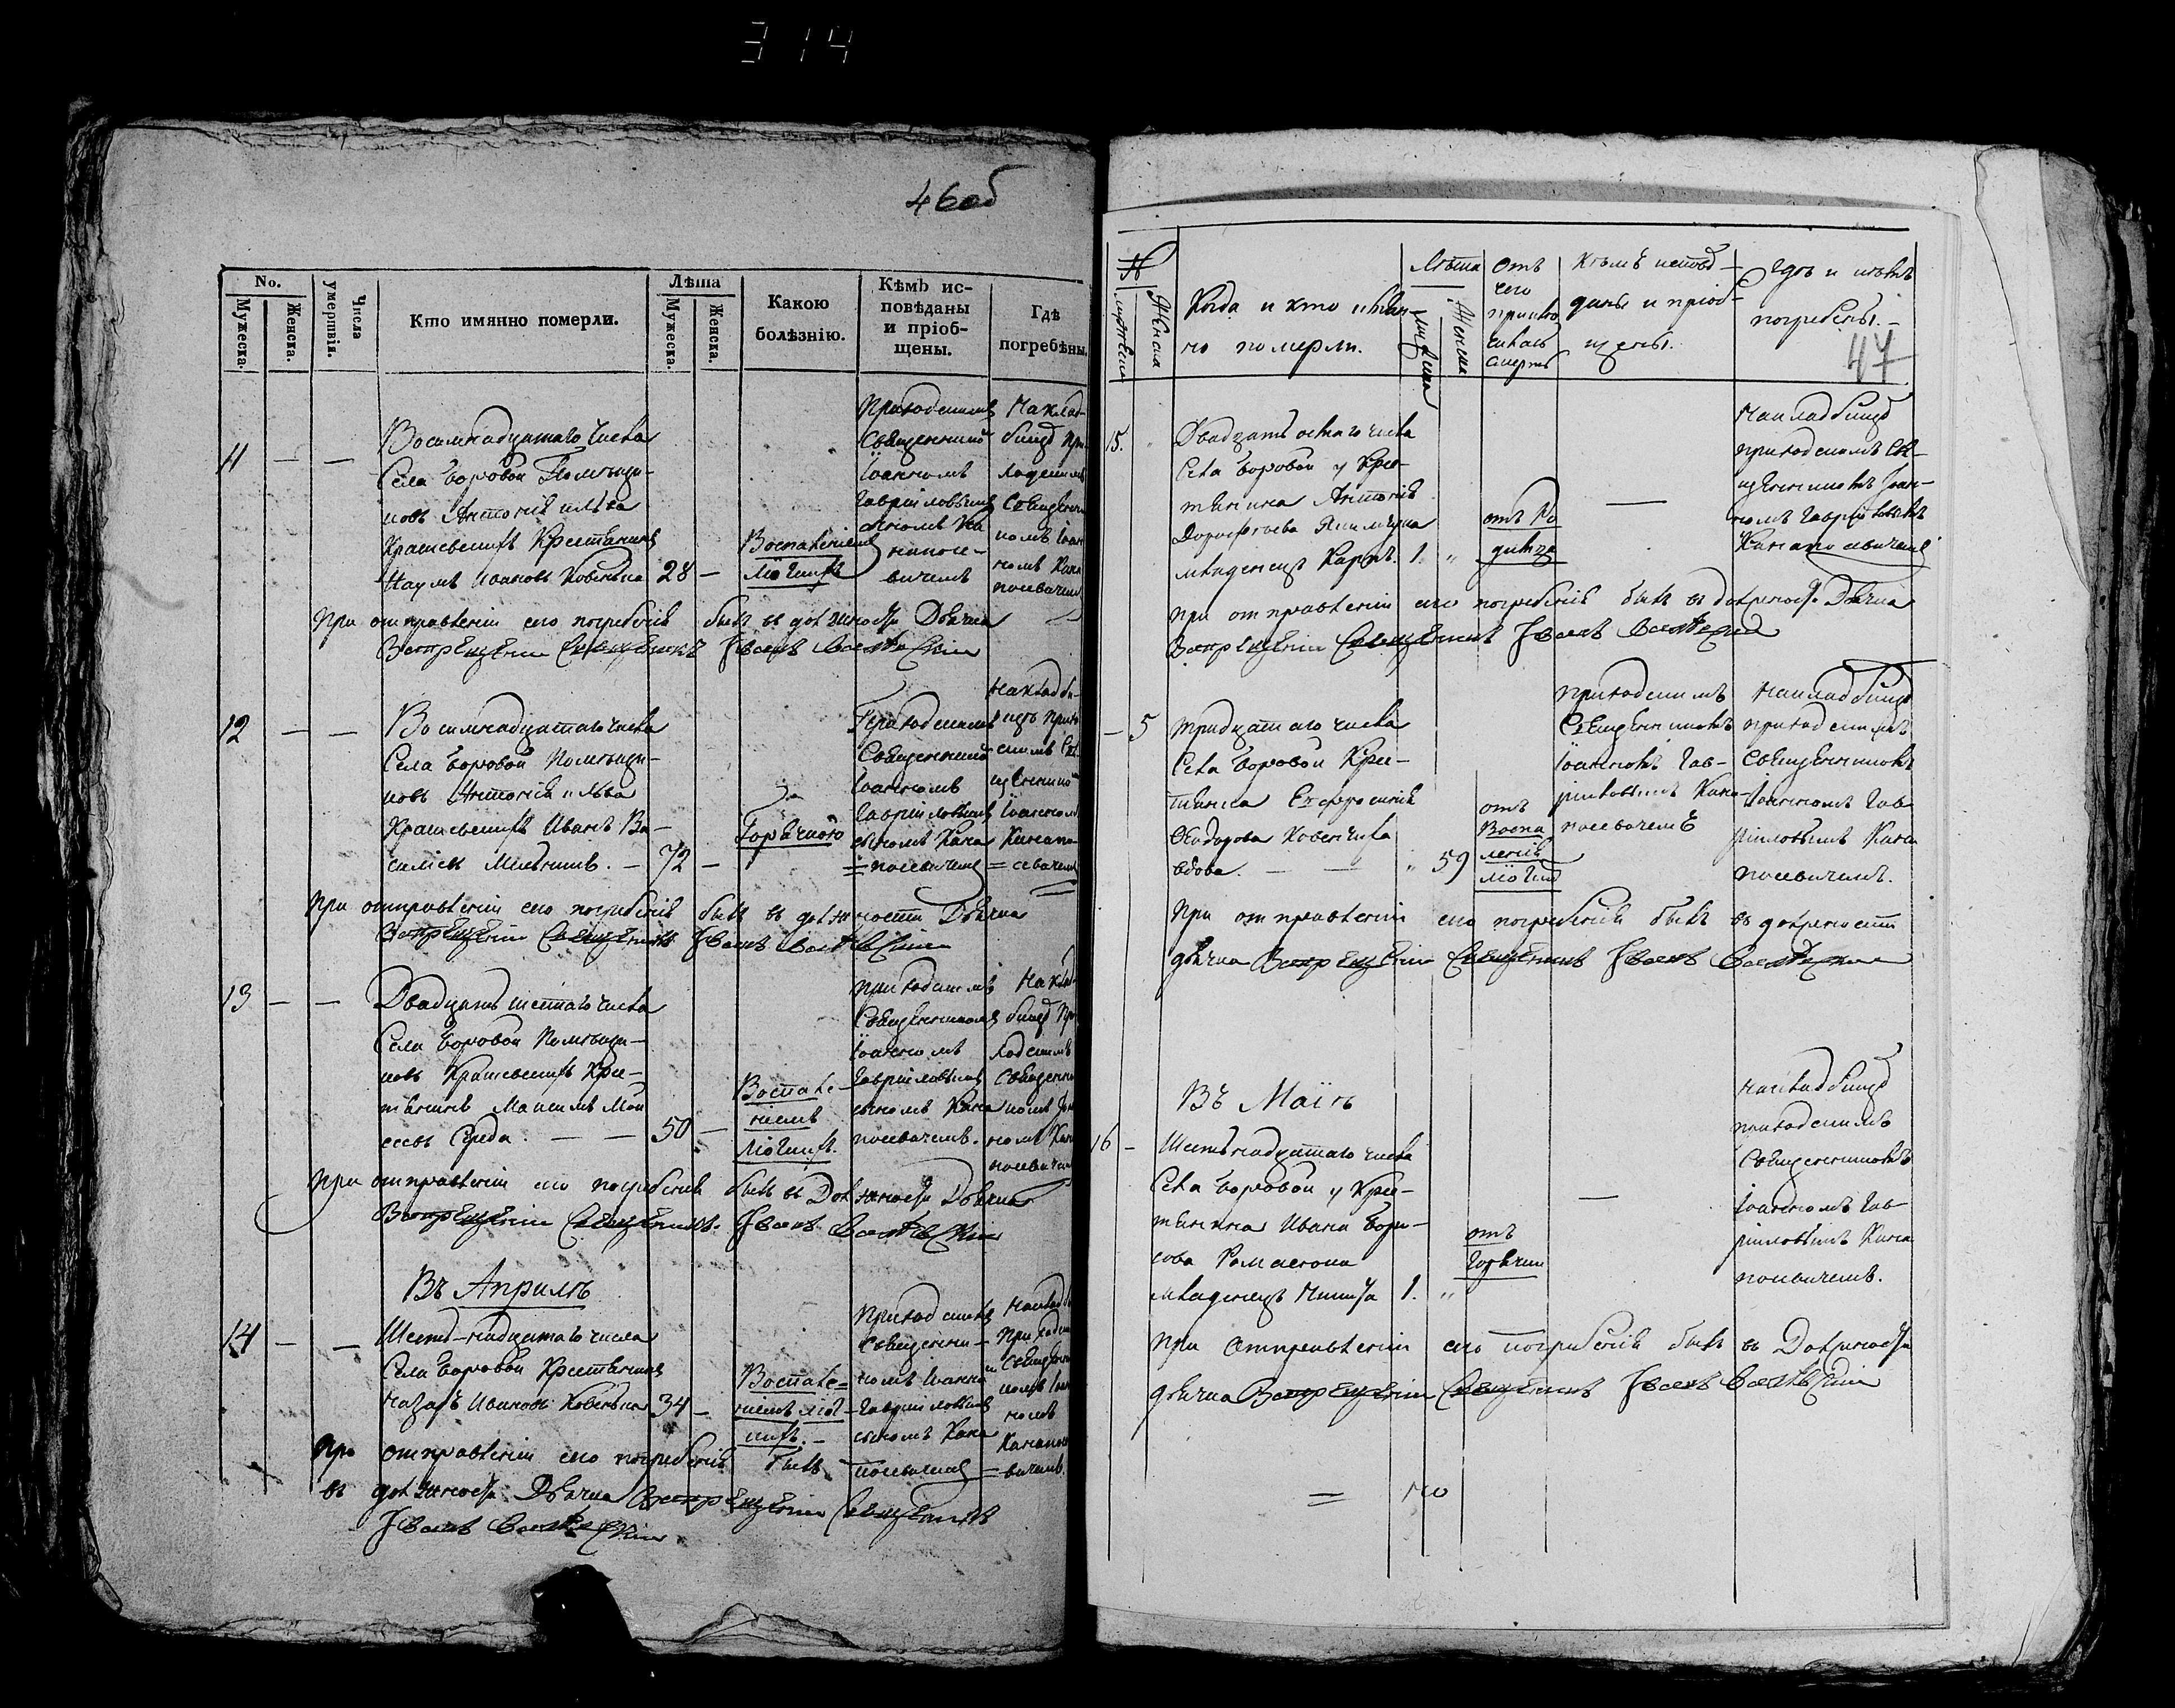 314
46об
No.
Мужеска.
Женска.
Числа умертвія.
Кто имянно померли.
Лѣта
Мужеска.
Женска.
Какою болѣзнію.
Кѣмъ исповѣданы и пріобщены.
Гдѣ погребены.
11 — —
Восемнадцатаго числа
Села Боровой Помѣщи-
ковъ Антонія и Льва
Крашевскихъ Крестьянинъ
Наумъ Ивановъ
28 —
Воспаленіемъ
лёгкихъ
Приходскимъ
Священник
Іоанномъ
Гавриловымъ
сыномъ Ка
напсе-
вичемъ
На клад-
бищѣ При
ходскимъ
Священни
комъ Іоан
номъ Кана
псевичем
При отправленіи его погребенія былъ въ должности Дьячка
Запрещеній Священникъ Іванъ
12 — —
Восемнадцатаго числа
Села Боровой Помѣщи-
ковъ Антонія и Льва
Крашевскихъ Иванъ Ва-
силіевъ Мельникъ. —
72 —
Горячкою
Приходскимъ
Священник
Іоанномъ
Гавриловымъ
сыномъ Кана
=псевичемъ
На кладби-
щѣ Прихо
скимъ Св
щенник
Іоанном
Канапс
=севичем
При отправленіи его погребенія былъ въ должности Дьячка
Запрещеній Священникъ Іванъ
13 — —
Двадцать шестаго числа
Села Боровой Помѣщи-
ковъ Крашевскихъ Крес-
тьянинъ Максимъ Мои
сеевъ Середа. — —
50 —
Воспале-
ніемъ
лёгкихъ.
Приходскимъ
Священникомъ
Іоанномъ
Гавриловымъ
сыномъ Кана
псевичемъ.
На клад
бищѣ При
ходскимъ
Священни
комъ Іоан
номъ Кана
псевичем
При отправленіи его погребенія былъ въ Должности Дьячка
Запрещеній Священникъ. Іванъ
Въ Априлѣ
14 — —
Шестьнадцатаго числа
Села Боровой Крестьянинъ
Назаръ Ивановъ
34 —
Воспале=
ніемъ лёг-
кихъ. —
Приходским
Священни-
комъ Іоанно
Гавриловым
сыномъ Кана
псевичем
На кладби
Приходск
Священни
комъ Іоан
номъ
Канапсе
=вичемъ.
При отправленіи его погребенія былъ
въ должности Дьячка Запрещеній Священникъ
Іванъ
№
мужеска
Женска
Когда и кто имян-
но померли.
Лѣта
мужеска
Женска
отъ
чего
приклю
чилась
смерть
кѣмъ исповѣ-
даны и пріоб-
щены.
гдѣ и кѣмъ
погребены.—
47
15. "
Двадцать осмаго числа
Села Боровой у Крес-
тьянина Антонія
Дорофѣева
младенецъ Карпъ.
1. "
отъ Ро
димца
—
На кладбищѣ
приходскимъ Свя-
щенникомъ Іоан-
номъ Гавриловымъ
Канапсевичемъ
При отправленіи его погребенія былъ въ должности Дьячка
Запрещеній Священникъ Іванъ
— 5
тридцатаго числа
Села Боровой Крес-
тьянка Евфросинія
Феодорова
вдова. — —
" 59
отъ
Воспа
ленія
лёгких
приходскимъ
Священникомъ
Іоанномъ Гав-
риловымъ Кана-
псевичемъ
на кладбищѣ
приходскимъ
Священникомъ
Іоанномъ Гав
риловымъ Кана
псевичемъ.
При отправленіи его погребенія былъ въ должности
дьячка Запрещеній Священникъ Іванъ
Въ Маіѣ
16 —
Шестьнадцатаго числа
Села Боровой у Крес-
тьянина Ивана Бори-
сова
младенецъ Никита
1. "
отъ
Горячки
—
на кладбищѣ
приходскимъ
Священникомъ
Іоанномъ Гав-
риловымъ Кана
псевичемъ.
При отправленіи его погребенія былъ въ Должности
дьячка Запрещеній Священникъ Іванъ